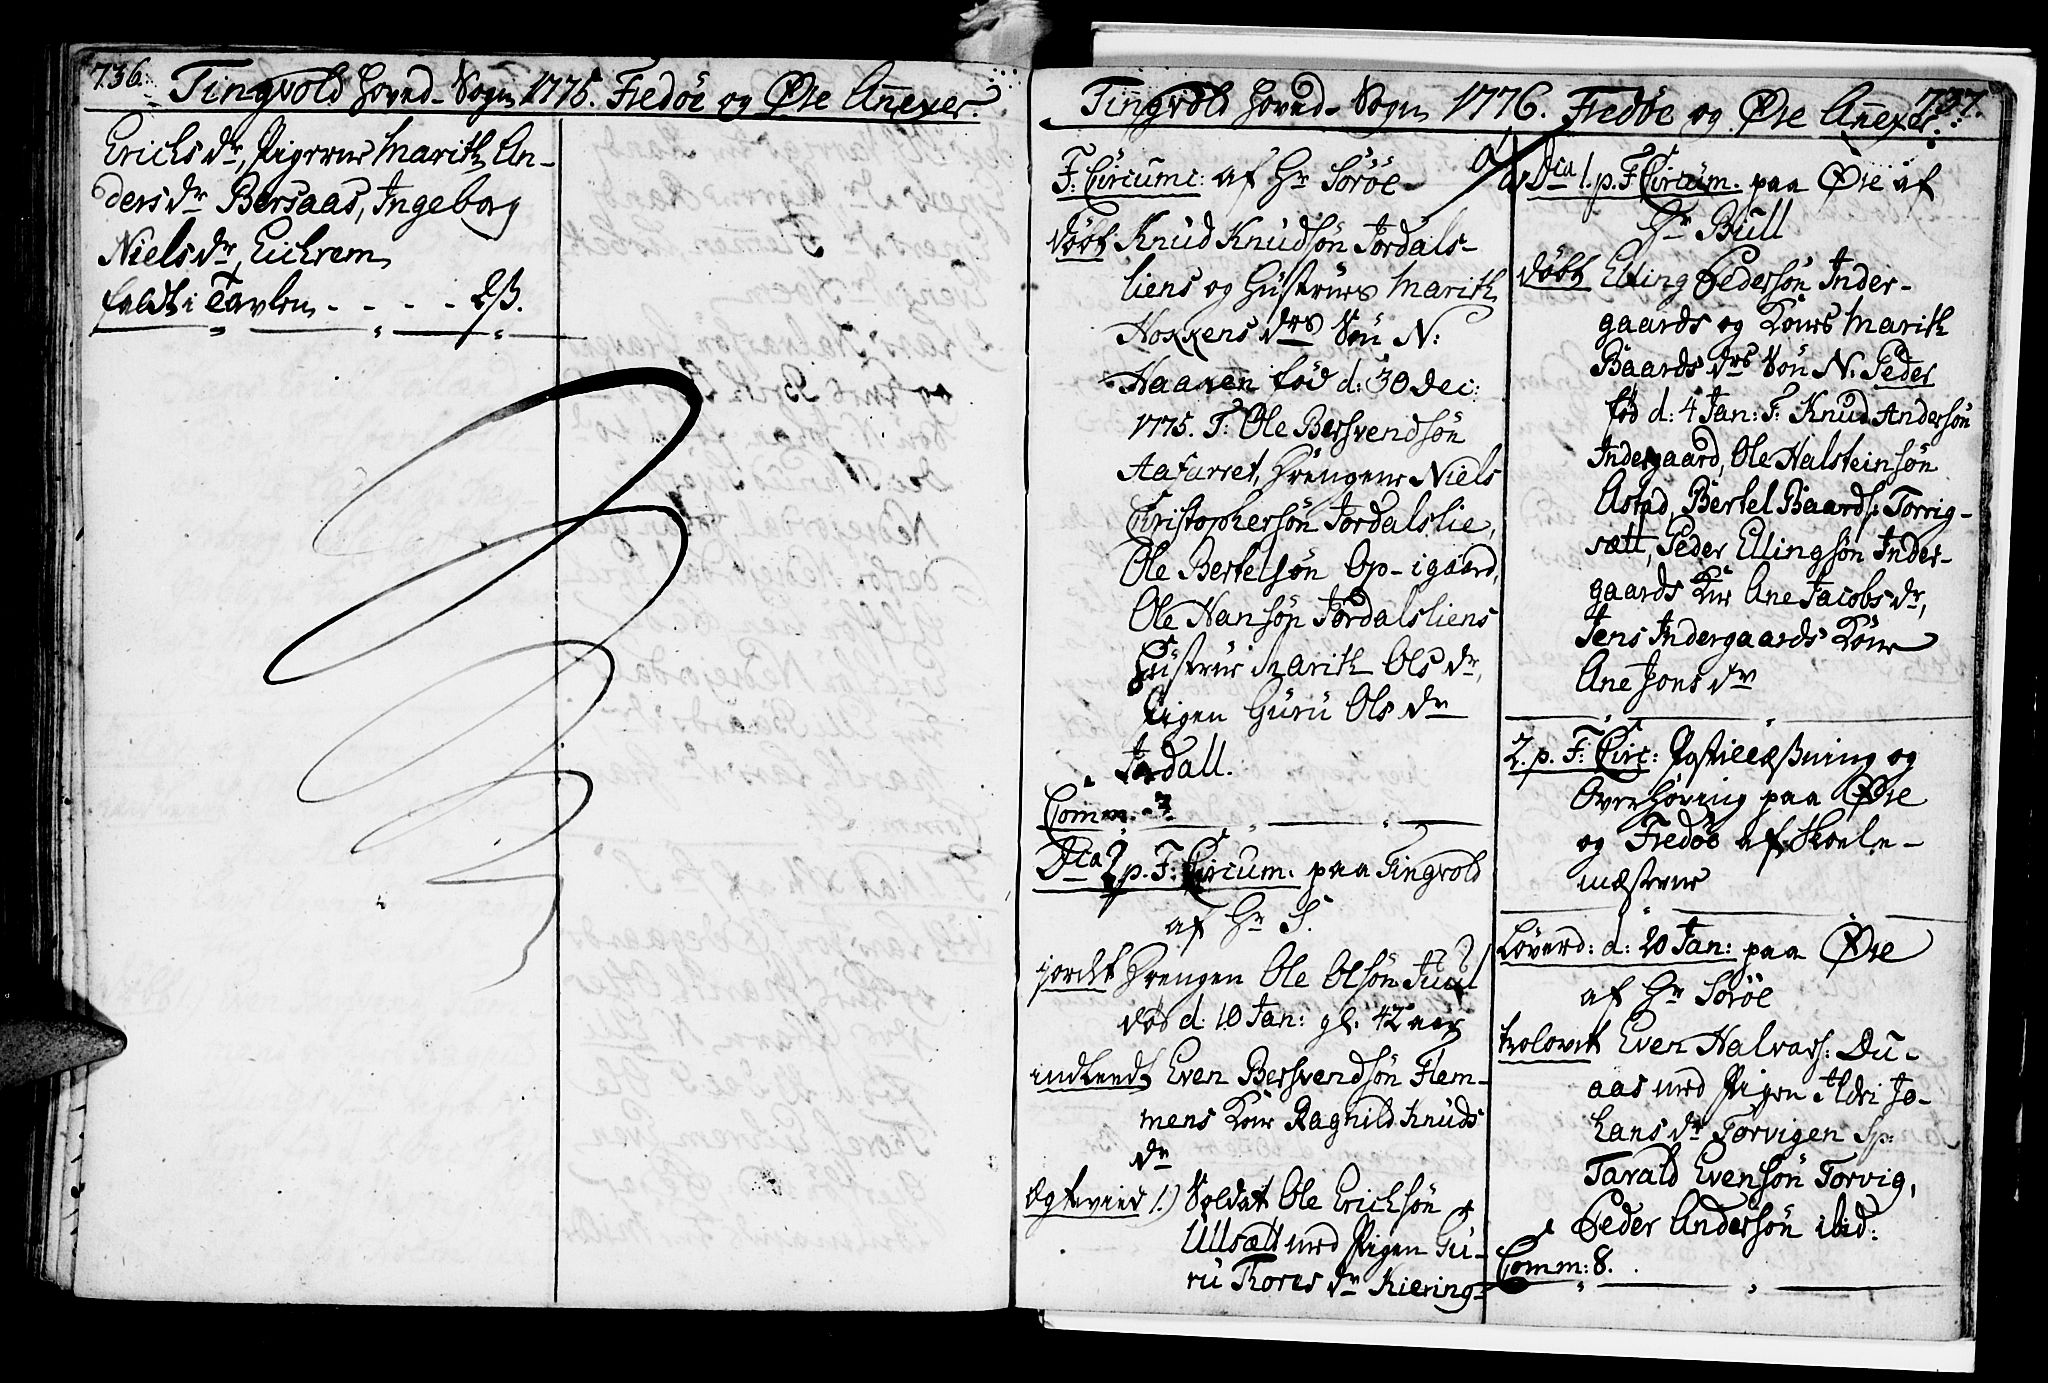 736. Tingvold Hoved-Sogn 1775. Fredöe og Øre Añexer.
Erichs dr, Pigerne Marith An-
ders dr Bersaas, Ingeborg
Niels dr, Eichrem
faldt i Tavlen - - - - 2 ß.
Tingvold Hoved-Sogn 1776. Fredöe og Øre Añexer. 737.
F: Circumc: af Hr Söröe
döbt Knud Knudsön Jordals-
liens og Hustrues Marith
Hokkens drs Sön N:
Haaken föd d: 30 Dec:
1775. F: Ole Bersvendsön
Aafarret, Drengene Niels
Christophersön Jordalslie,
Ole Bertelsön Op-igaard,
Ole Hansön Jordalsliens
Hustrue Marith Ols dr,
Pigen Guru Ols dr
Jordall.
Comm: 7
Dca 2 p. F: Circum: paa Tingvold
af Hr S.
jordet Drengen Ole Olsön Juul
död d: 10 Jan: gl. 42 aar
indleedt Even Bersvendsön Flem-
mens Kone Ragnild Knuds
dr
Ægtevied 1.) Soldat Ole Ericksön
Ullsætt med Pigen Gu-
ru Thores dr Kiering-
Dca 1. p. F Circum. paa Øre af
Hr Bull
döbt Elling Pedersön Inder-
gaards og Kones Marith
Baards drs Sön N. Peder
föd d: 4 Jan: F: Knud Andersön
Indergaard, Ole Halsteinsön
Astad, Bertel Baards: Torrig-
sætt, Peder Ellingsön Inder-
gaards Kone Ane Jacobs dr,
Jens Indergaards Kone
Ane Jons dr
2. p. F: Circ: Postillæsning og
Overhöring paa Øre
og Fredöe af Skole-
mæsterne
Löverd: d: 20 Jan: paa Øre
af Hr Söröe
trolovet Even Halvars: Du-
aas med Pigen Ildri Jo-
hans dr Torvigen Sp:
Tarald Evensön Torvig,
Peder Andersön ibid:
Comm: 8.